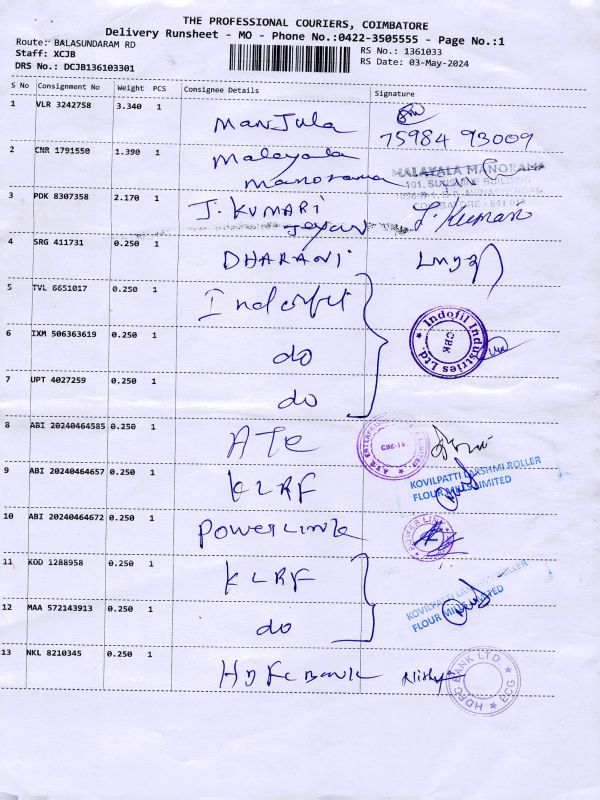 THE PROFESSIONAL COURIERS, COIMBATORE
Delivery Runsheet - MO - Phone No.:0422-3505555 - Page No.:1
Route: BALASUNDARAM RD
Staff: XCJB
DRS No.: DCJB136103301
RS No.: 1361033
RS Date: 03-May-2024
S No Consignment No Weight PCS Consignee Details Signature
1 VLR 3242758 3.340 1 Manjula 75984 93009
2 CNR 1791550 1.390 1 Malayala
manorama
MALAYALA MANORAMA
3 PDK 8307358 2.170 1 J. KUMARI J. Kumari
Jeyan
4 SRG 411731 0.250 1 DHARANi
5 TVL 6651017 0.250 1 Indofil
Indofil Industries Ltd. CBK
6 IXM 506363619 0.250 1 do
7 UPT 4027259 0.250 1 do
8 ABI 20240464585 0.250 1 ATE
9 ABI 20240464657 0.250 1 KLRF
KOVILPATTI LAKSHMI ROLLER
FLOUR MILLS LIMITED
10 ABI 20240464672 0.250 1 Powerlink
POWER LINK
11 KOD 1288958 0.250 1 KLRF
KOVILPATTI LAKSHMI ROLLER
FLOUR MILLS LIMITED
12 MAA 572143913 0.250 1 do
13 NKL 8210345 0.250 1 HDFC Bank Nithya
HDFC BANK LTD